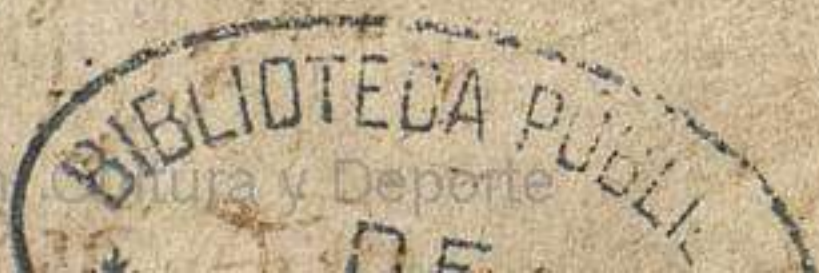 BIBLIOTECA PUBLI
Cultura y Deporte
DE